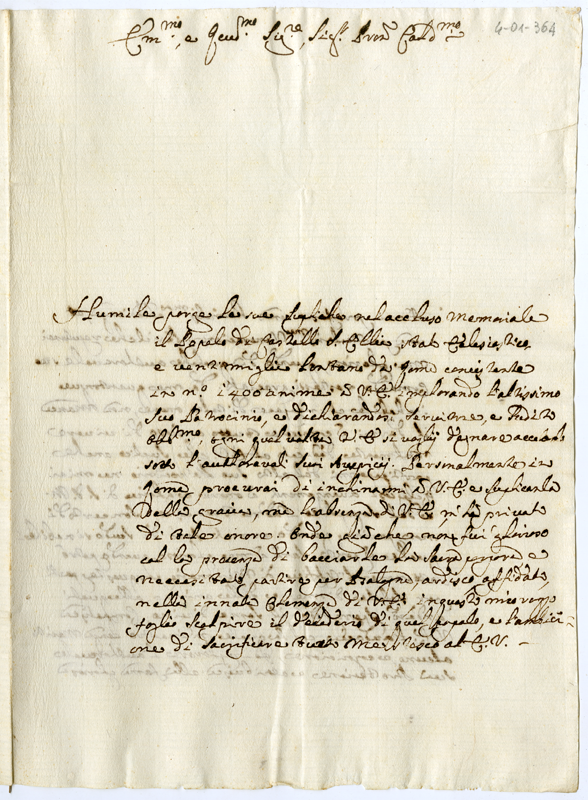 4-01-364
Em.mo, e Reud.mo Sig.re, Sig.r Pron Col.mo
Humile porge le sue supliche nel accluso Memoriale
il Popolo di Castello S. Ellia, stato Eclesiastico
e venti miglia lontano da Roma consistente
in n.o 1400 anime à V.E. implorando l'altissimo
suo Patrocinio, e dichiarandosi servitore, e
ogni qual volta V.E. si vogli degnare accettarlo
sotto l'autorevoli suoi Auspicij. Personalmente in
Roma, procurai di inchinarmi à V.E. e suplicarla
della gracia, ma la absenza di V.E. m'hà privato
di tale onore. Onde già che non fui glorioso
col la presenza di bacciarle la sacra e
neccesitato partire per ardisco affidato
nella innata Clemenza di V.E. in questo mio
foglio scolpire il desiderio di quel popolo, e l'ambici-
one di sacrificare tutto me stesso al E.V.